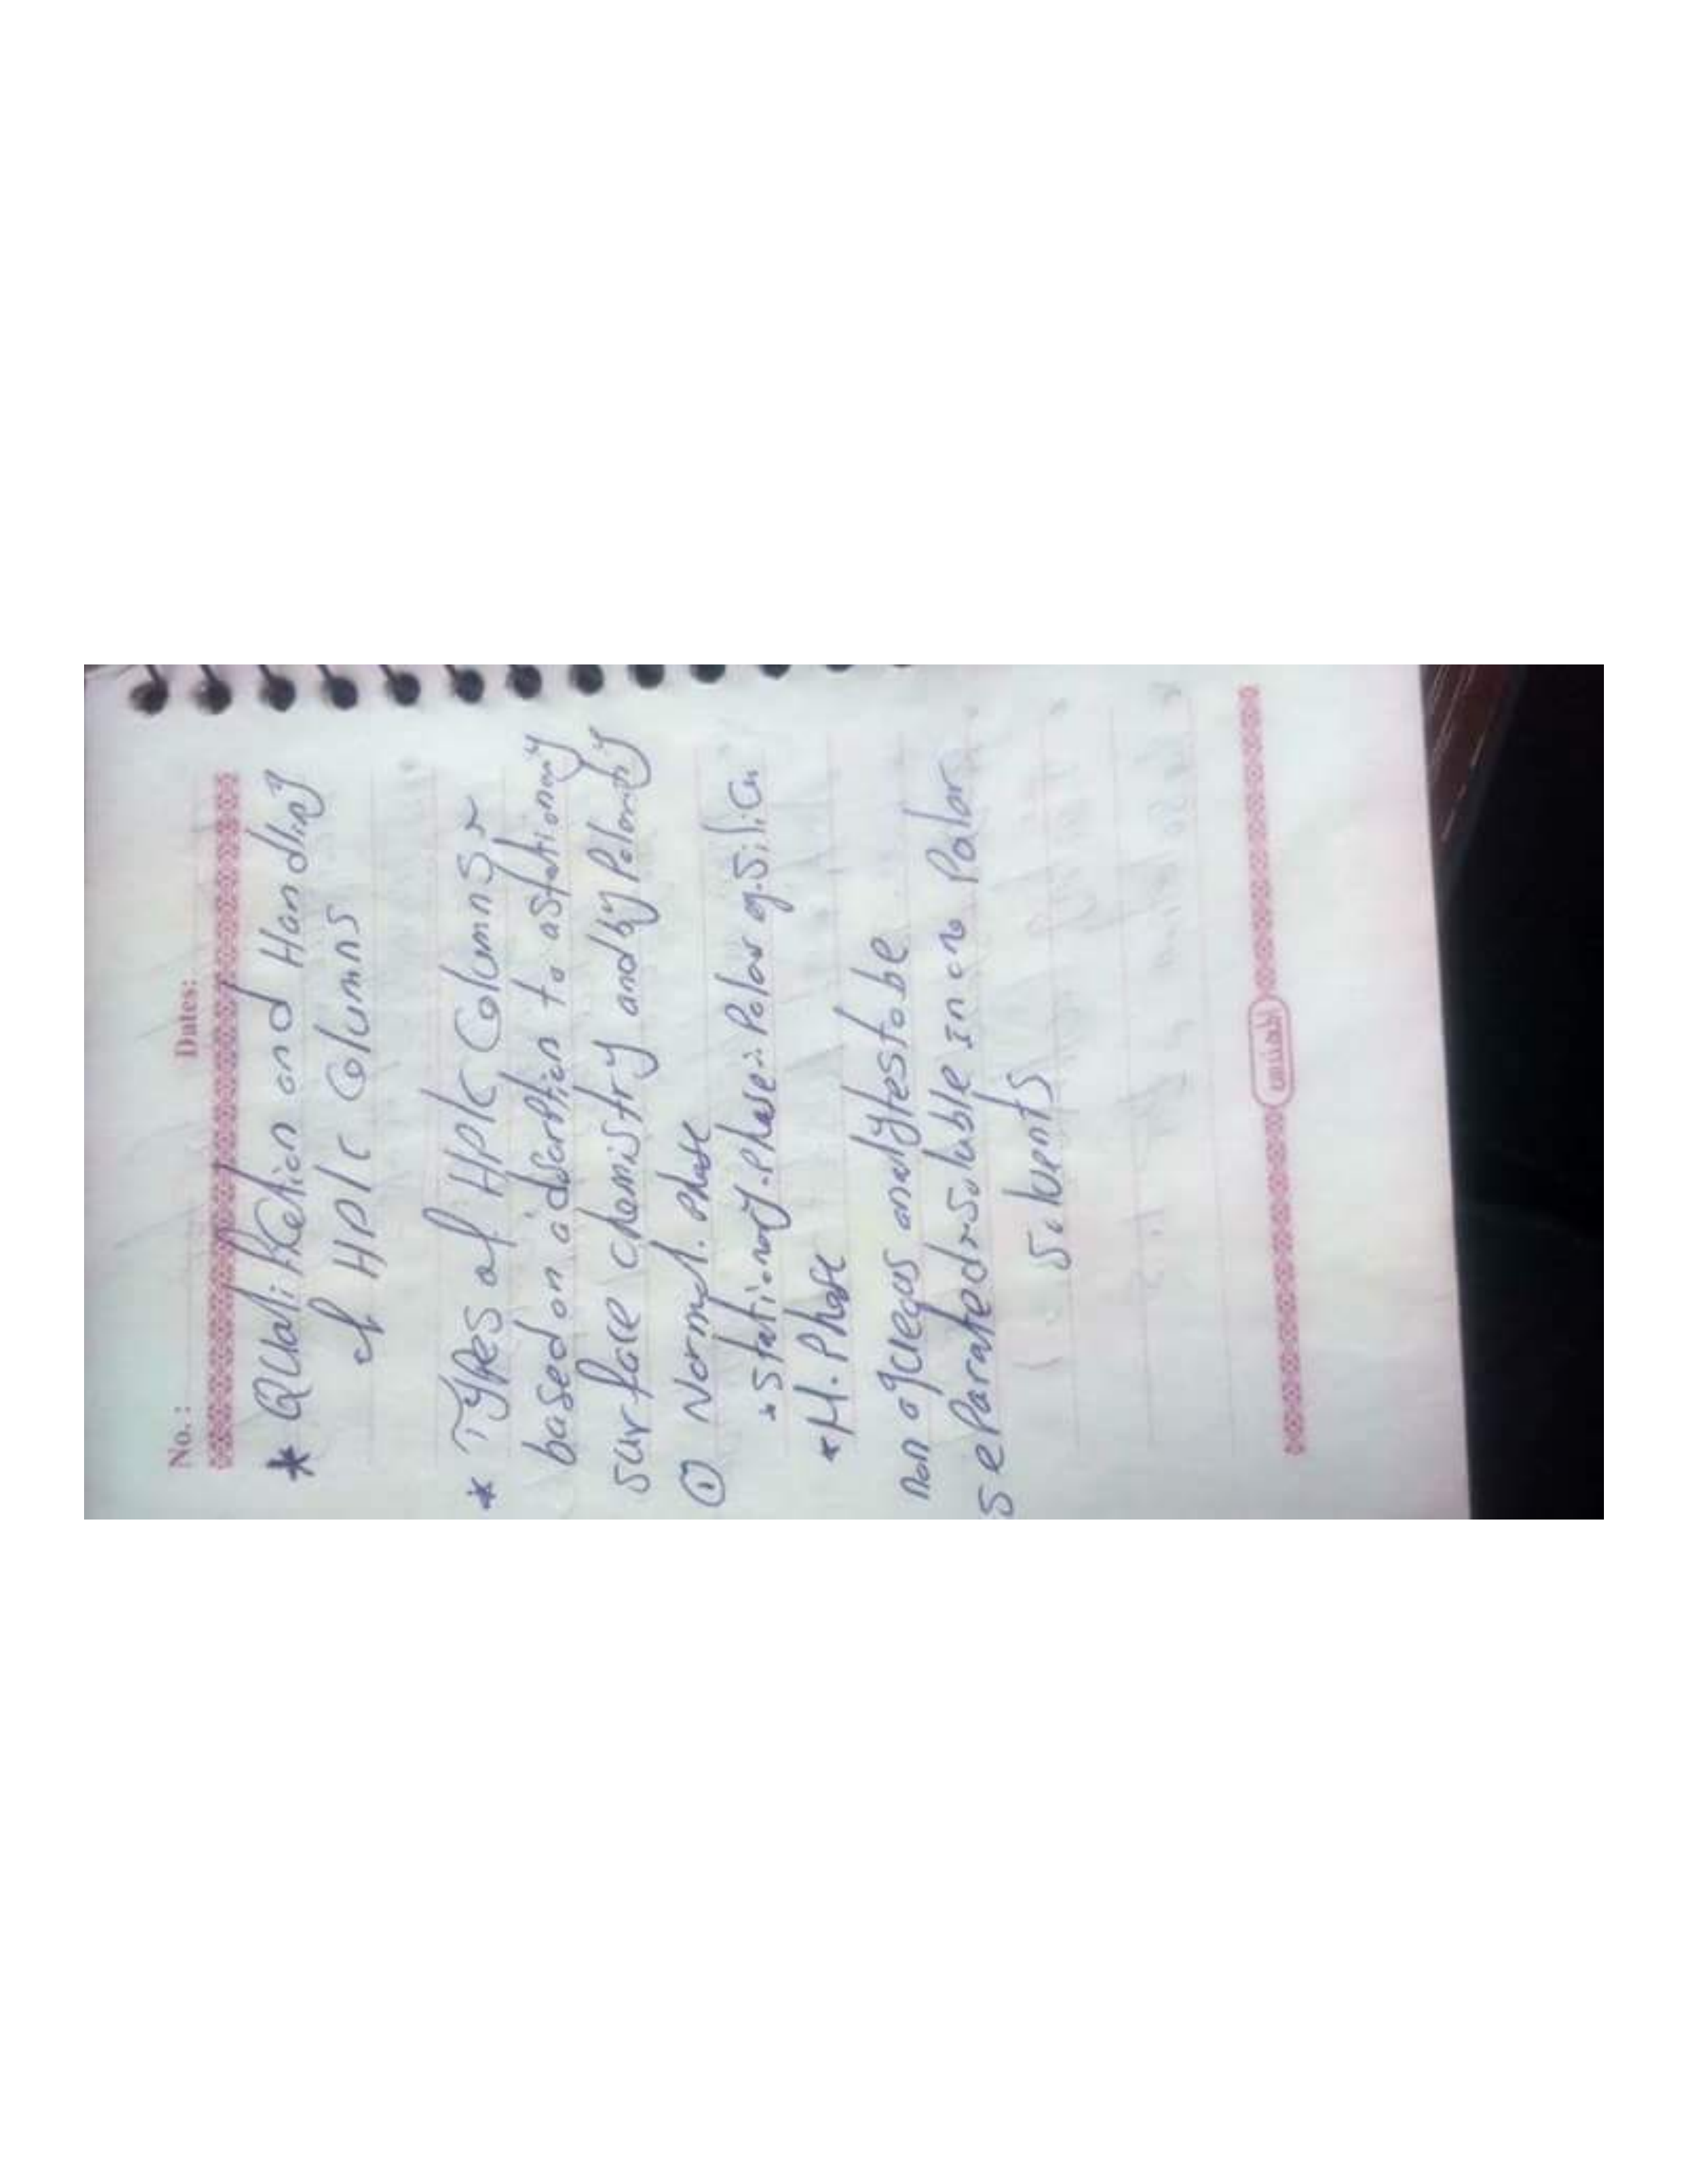 No. : Dates:
* Qualification and Handling
of HPLC Columns
* Types of HPLC Columns :-
based on adsorption to a stationary
surface chemistry and by Polarity
① Normal. Phase
* Stationary. Phase :- Polar eg. Silica
* M. Phase
non aqueous analytes to be
separated :- Soluble in Polar
Solvents
المهندس